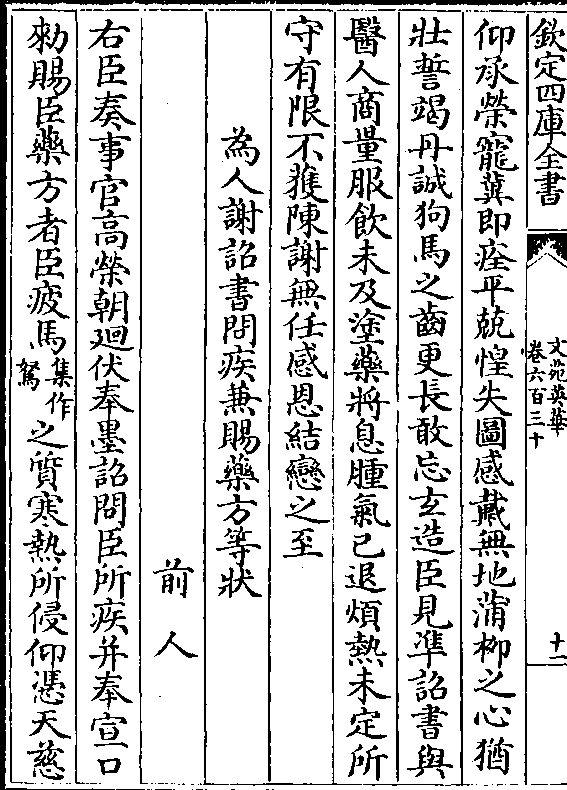 欽定四庫全書
文苑英華
卷六百三十
十一
仰承榮寵冀即痊平兢惶失圖感戴無地蒲柳之心猶
壯誓竭丹誠狗馬之齒更長敢忘玄造臣見準詔書與
醫人商量服飲未及塗藥將息腫氣已退煩熱未定所
守有限不獲陳謝無任感恩結戀之至
為人謝詔書問疾兼賜藥方等狀
前人
右臣奏事官高榮朝廻伏奉墨詔問臣所疾并奉宣口
勑賜臣藥方者臣疲馬集作駑之質寒熱所侵仰憑天慈